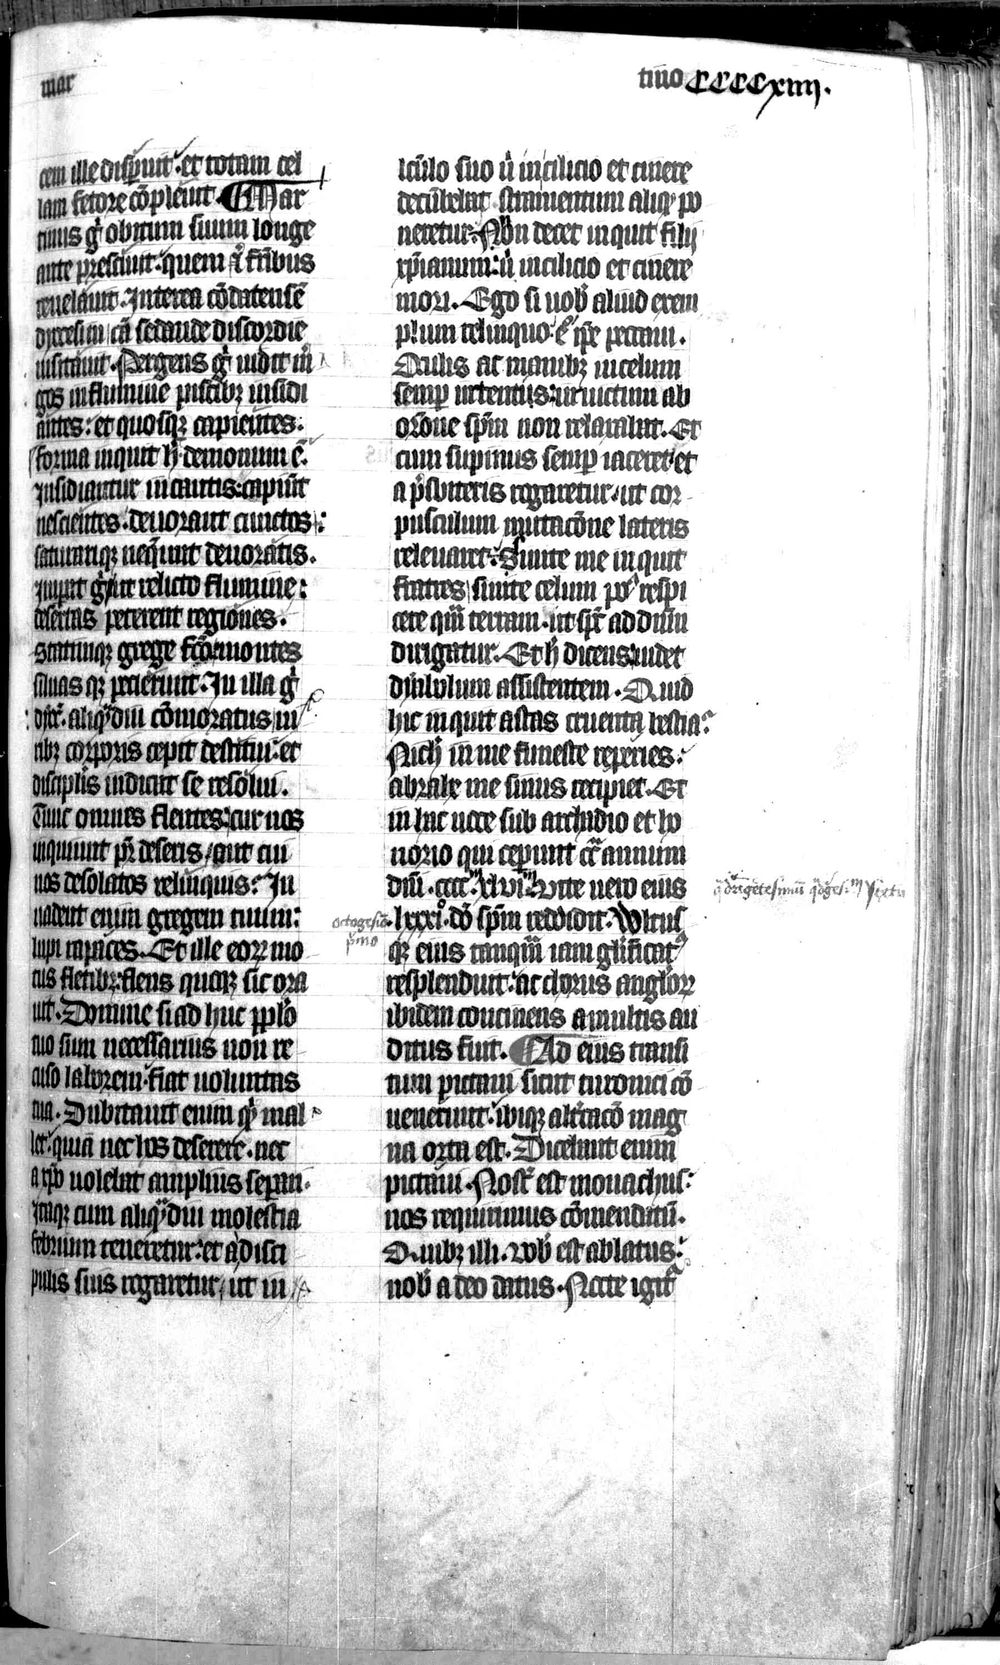 mar
tino CCCCxiiij.
cem ille disparuit. et totam cel
lam fetore cōpleuit. ¶ Mar
tinus gͥ obitum suum longe
ante presciuit: quem ⁊ frībus
reuelauit. Interea cōdatensē
dyocesim cā sedande discordie
uisitauit. Pergens gͥ uidit m̄
gos in flumine piscibꝫ insidi
antes: et quosqꝫ capientes.
forma inquit h̄ demonum ē.
Insidiantur incautis: capiūt
nescientes. deuorant cunctos:
saturarīqꝫ nequeunt deuoratis.
Imperat gͥ ut relicto flumine:
desertas peterent regiones.
Statimqꝫ grege fcō: montes
siluas qꝫ petierunt. In illa gͥ
dyoc̄. aliqͣdiu cōmoratus ui
ribꝫ corporis cepit destitui: et
discipulis indicat se resolui.
Tunc omnes flentes: cur nos
inquiunt pr̄ deseris / aut cui
nos desolatos relinquis: In
uadent enim gregem tuum:
lupi rapaces. Et ille eorꝝ mo
tus fletibꝫ: flens quoqꝫ sic ora
uit. Domine si ad huc pplō
tuo sum necessarius non re
cuso laborem: fiat uoluntas
tua. Dubitauit enim qͥd mal
let: quia nec hos deserere. nec
a xpō uolebat amplius separari.
Itaqꝫ cum aliqͣdiu molestia
febrium teneretur: et a disci
pulis suis rogaretur / ut in
lectulo suo ū in cilicio et cinere
decūbebat stramentum aliqͥ po
neretur: Nōn decet inquit filij
xpīanum: ū in cilicio et cinere
mori. Ego si uob̄ aliud exem
plum relinquo. ego ip̄e peccaui.
Oculis ac manibꝫ in celum
semper intentus: inuictum ab
orōne spm̄ non relaxabat. Et
cum supinus semper iaceret et
a p̄sbiteris rogaretur / ut cor
pusculum mutacōne lateris
releuaret: Sinite me inquit
fratres sinite celum pocͥ respi
cere qͣm terram. ut spc̄ ad dnm̄
dirigatur. Et h̄ dicens: uidet
dyabolum assistentem. Quid
hic inquit astas cruenta bestia:
Nich̄ in me funeste reperies:
abrahe me sinus recipiet. Et
in hac uoce sub archadio et ho
norio qui ceperunt cͣ annum
dnī. cccͫxlviͫ Vite uero eius
lxxxiͦ. dō spm̄ reddidit. Vltus
qꝫ eius tanqͣm iam glīficatꝰ
resplenduit: ac chorus anglorꝝ
ibidem concinens a multis au
ditus fuit. ¶ Ad eius transi
tum pictaui sicut turonici cō
uenerunt: ibiqꝫ altīcacō mag
na orta est. Dicebant enim
pictaui. Nost̄ est monachus:
nos requirimus cōmendatū.
Quibꝫ illi. vob̄ est ablatus:
nob̄ a deo datus. Nocte igit̄
octogesiō
p̄mo
qͣdrigetesimū qͣdges:ͫ sextū